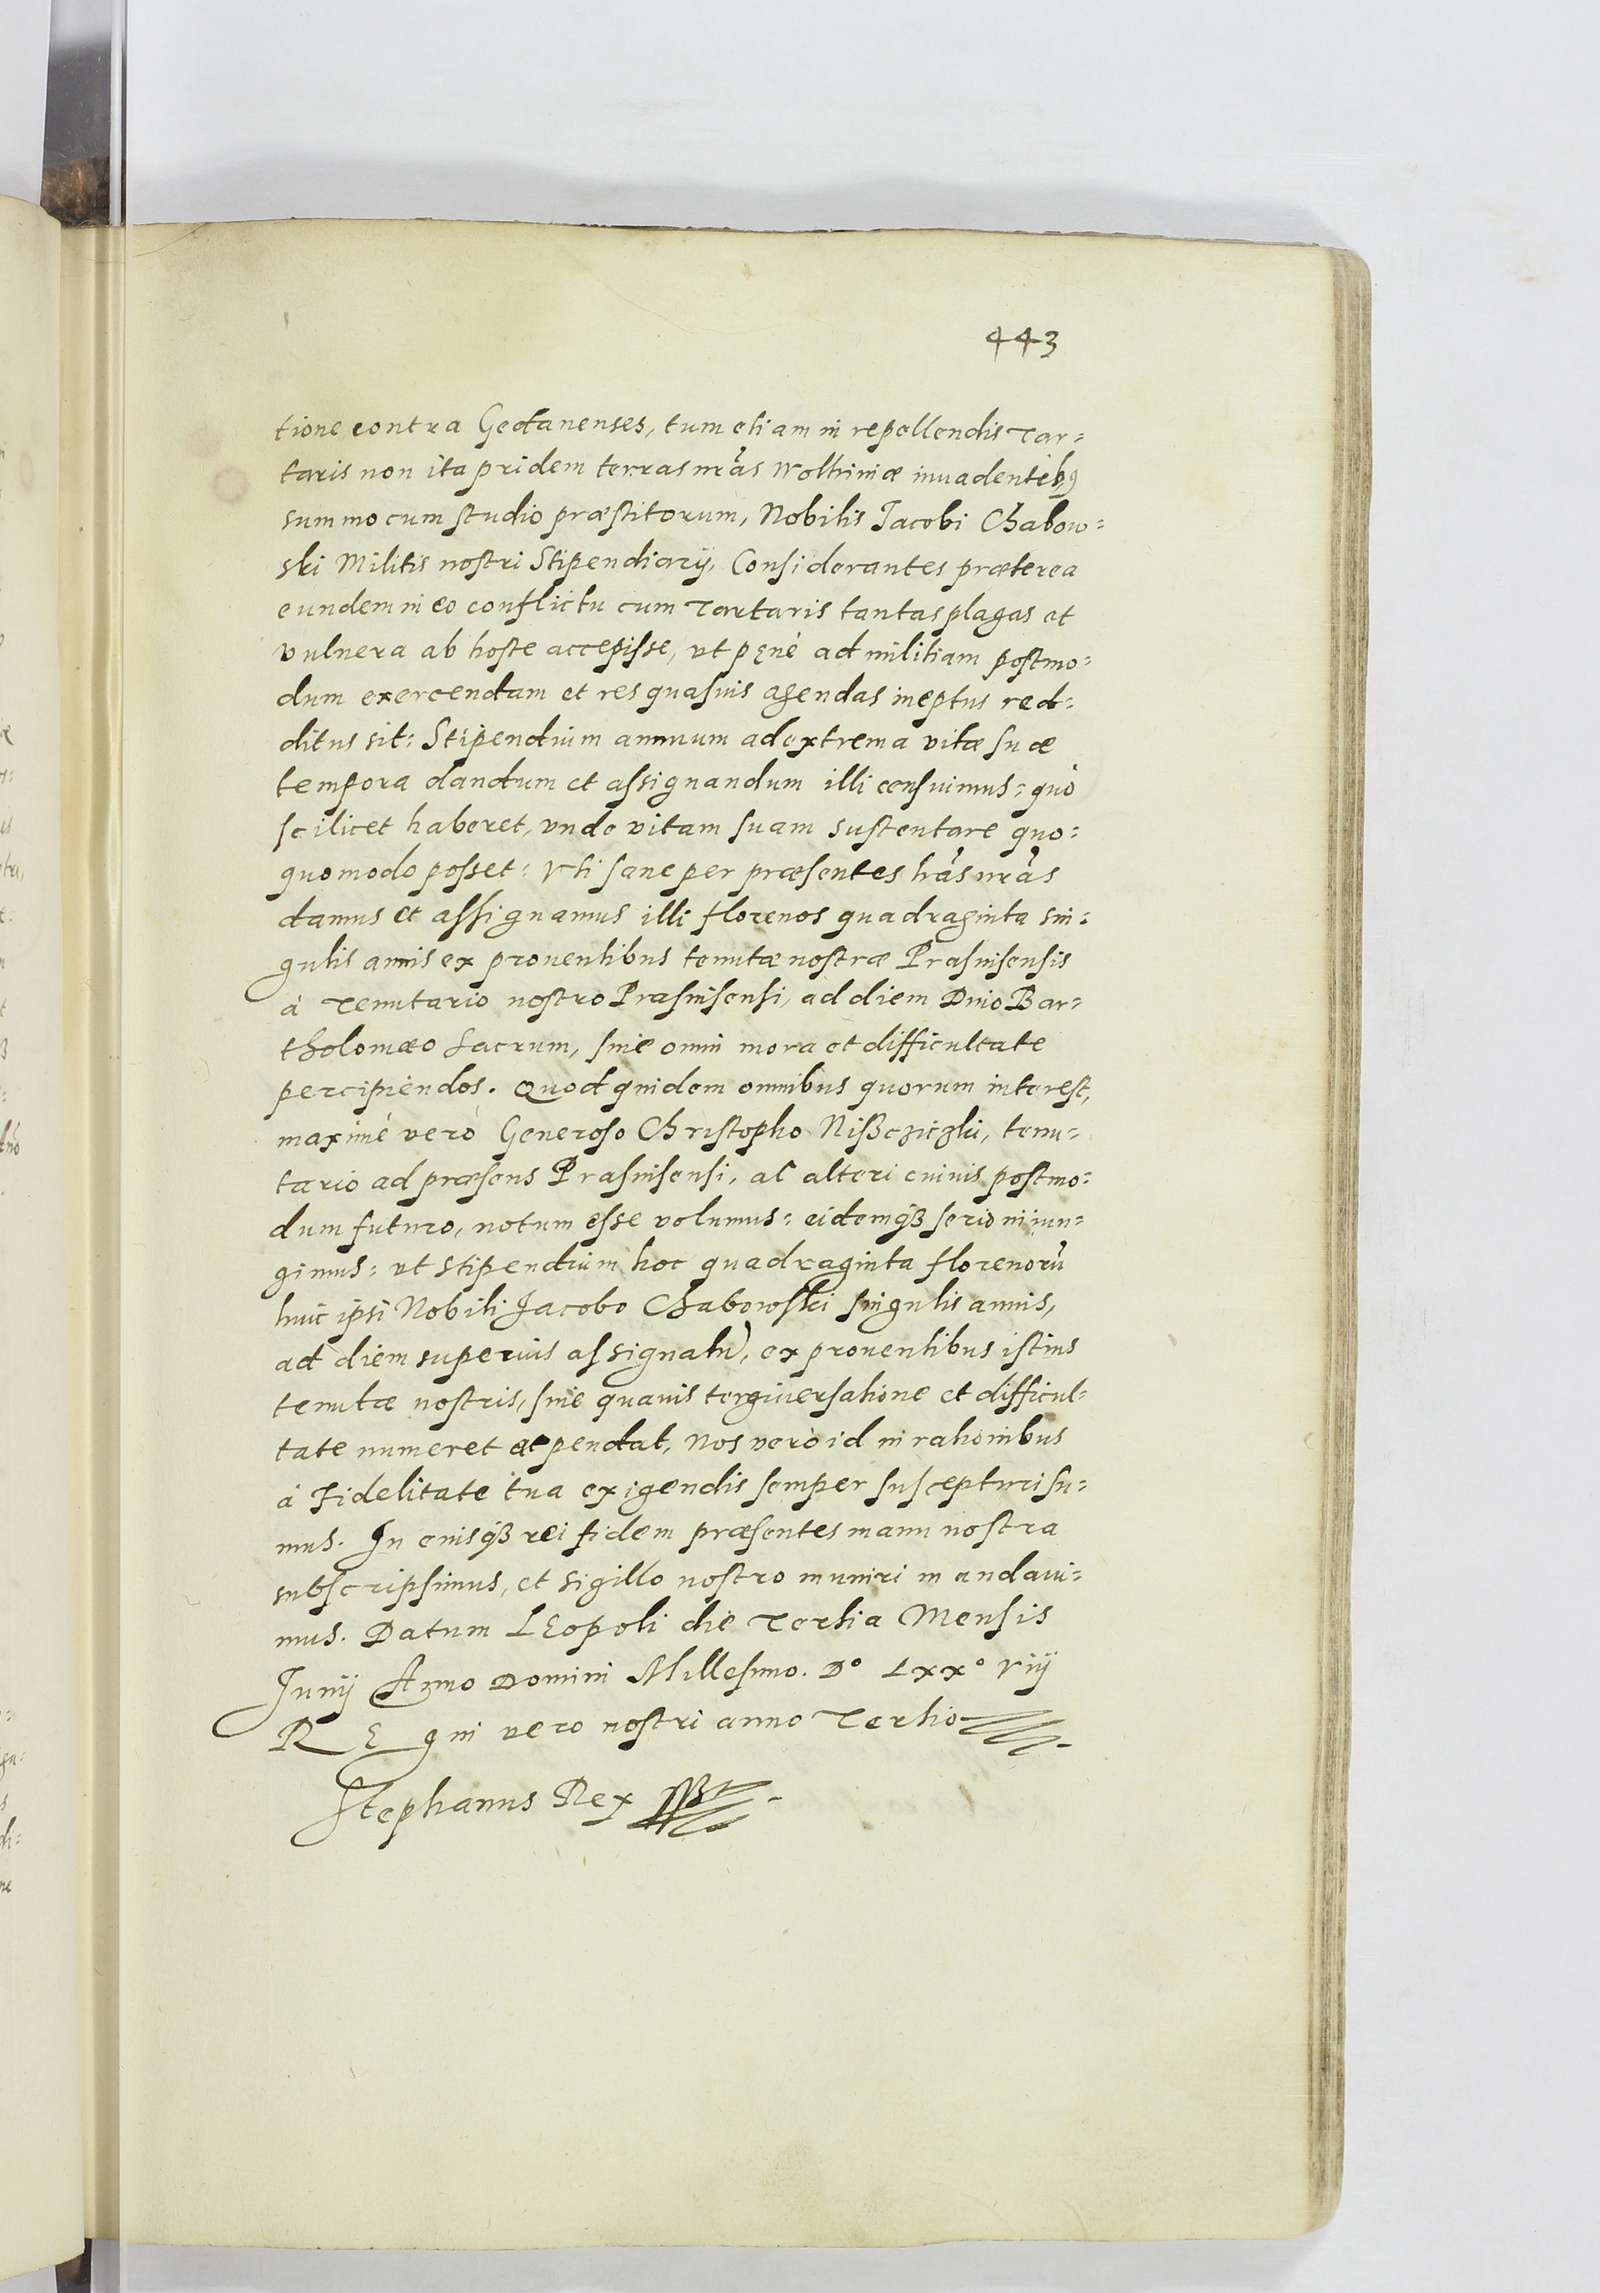 443
tione contra Gedanenses, tum etiam in repellendis Tar=
taris non ita pridem terras nr̃as Wolhiniæ inuadentib9
summo cum studio præstitorum, Nobilis Jacobi Chabow=
ski Militis nostri Stipendiarij, Considerantes præterea
eundem in eo conflictu cum Tartaris tantas plagas et
vulnera ab hoste accepisse, vt pęnè ad militiam postmo=
dum exercendam et res quasuis agendas ineptus red=
ditus sit: Stipendium annuum ad extrema vitæ suæ
tempora dandum et assignandum illi censuimus: quò
scilicet haberet, vnde vitam suam sustentare quo=
quomodo posset: Vti sane per præsentes lr̃as nr̃as
damus et assignamus illi florenos quadraginta sin=
gulis annis ex prouentibus tenutæ nostræ Prasnisensis
à Tenutario nostro Prasnisensi, ad diem Diuo Bar=
tholomæo sacrum, sine omni mora et difficultate
percipiendos. Quod quidem omnibus quorum interest,
maximè verò Generoso Christopho Nißcziczki, tenu=
tario ad præsens Prasnisensi, ac alteri cuiuis postmo=
dum futuro, notum esse volumus: eidemqß serio iniun=
gimus: vt stipendium hoc quadraginta florenorũ
huic ipsi Nobili Jacobo Chabowski singulis annis,
ad diem superius assignatũ, ex prouentibus istius
tenutæ nostris, sine quauis tergiuersatione et difficul=
tate numeret et pendat, Nos verò id in rationibus
à Fidelitate tua exigendis semper suscepturi su=
mus. In cuiusqß rei fidem præsentes manu nostra
subscripsimus, et sigillo nostro muniri mandaui=
mus. Datum LEopoli die Tertia Mensis
Junij Anno Domini Millesimo. D° LXX° viij
REgni vero nostri anno Tertio
Stephanus Rex sßt